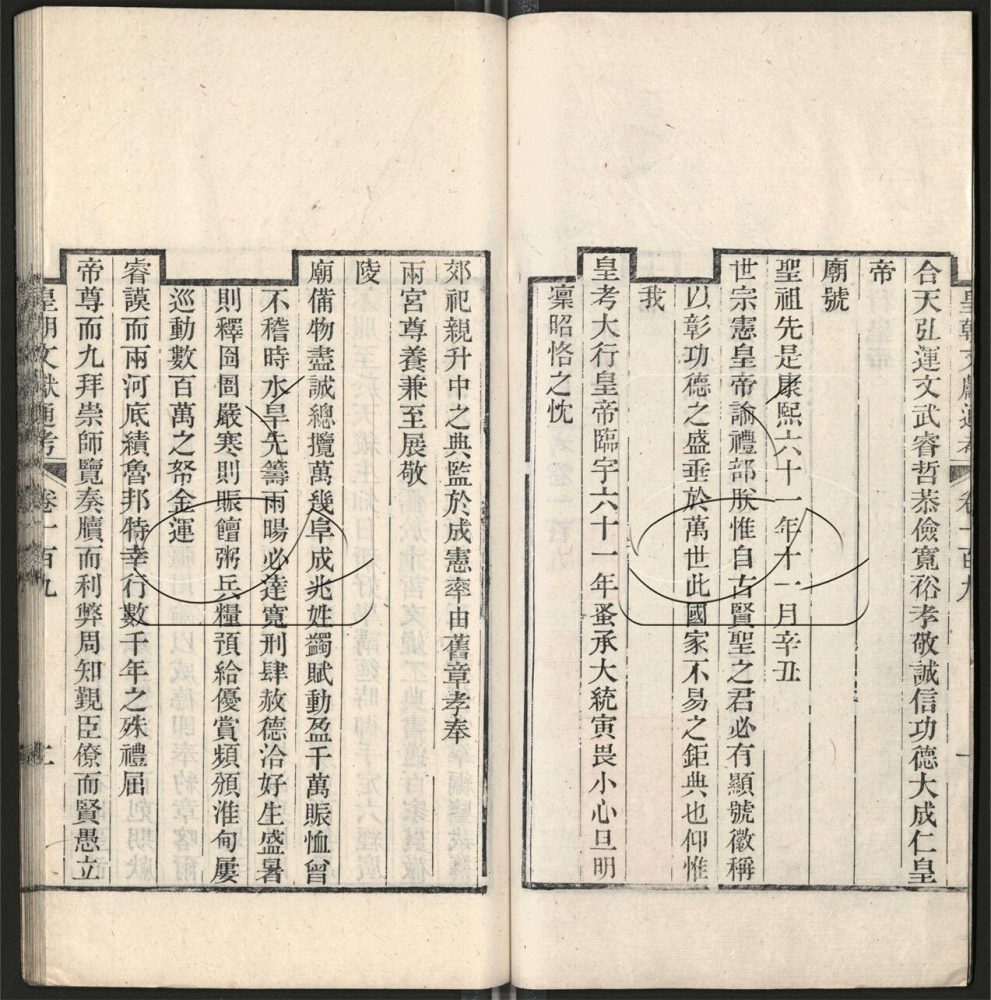 皇朝文獻通考 卷一百九 一
合天弘運文武睿哲恭儉寬裕孝敬誠信功德大成仁皇
帝
廟號
聖祖先是康熙六十一年十一月辛丑
世宗憲皇帝諭禮部朕惟自古賢聖之君必有顯號徽稱
以彰功德之盛垂於萬世此國家不易之鉅典也仰惟
我
皇考大行皇帝臨宇六十一年蚤承大統寅畏小心旦明
凜昭格之忱
郊祀親升中之典監於成憲率由舊章孝奉
兩宮尊養兼至展敬
陵
廟備物盡誠總攬萬幾阜成兆姓蠲賦動盈千萬賑恤曾
不稽時水旱先籌雨暘必達寬刑肆赦德洽好生盛暑
則釋囹圄嚴寒則賑饘粥兵糧預給優賞頻頒淮甸屢
巡動數百萬之帑金運
睿謨而兩河底績魯邦特幸行數千年之殊禮屈
帝尊而九拜崇師覽奏牘而利弊周知覲臣僚而賢愚立
皇朝文獻通考 卷一百九 二